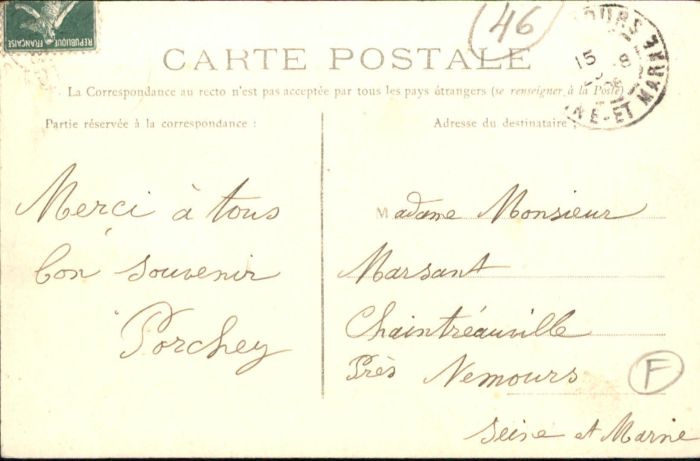 REPUBLIQUE FRANÇAISE
46
CARTE POSTALE
La Correspondance au recto n'est pas acceptée par tous les pays étrangers (se renseigner à la Poste)
Partie réservée à la correspondance :
Merci à tous
bon souvenir
Porchey
Adresse du destinataire :
Madame Monsieur
Marsant
Chaintréauville
Près Nemours
Seine et Marne
F
15 8
ET MARNE